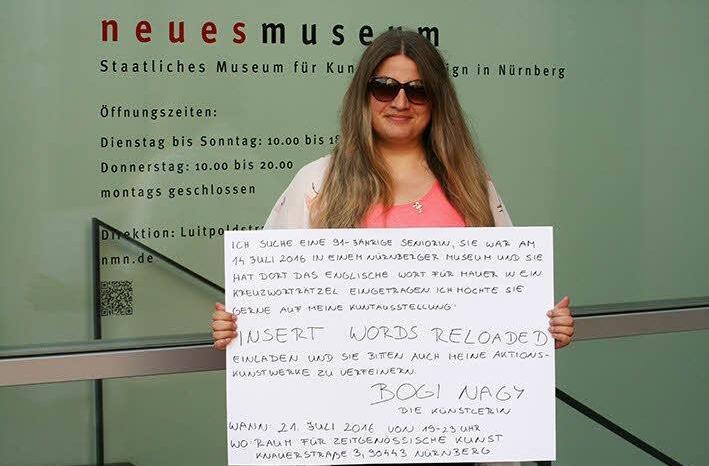 neuesmuseum
Staatliches Museum für in Nürnberg
Öffnungszeiten:
Dienstag bis Sonntag: 10.00 bis 18
Donnerstag: 10.00 bis 20.00
montags geschlossen
Direktion:
nmn.de
ICH SUCHE EINE 91-JÄHRIGE SENIORIN, SIE WAR AM
14 JULI 2016 IN EINEM NÜRNBERGER MUSEUM UND SIE
HAT DORT DAS ENGLISCHE WORT FÜR MAUER IN EIN
KREUZWORTRÄTZEL EINGETRAGEN ICH MÖCHTE SIE
GERNE AUF MEINE KUNTAUSSTELLUNG:
INSERT WORDS RELOADED
EINLADEN UND SIE BITTEN AUCH MEINE AKTIONS-
KUNSTWERKE ZU VERFEINERN.
BOGI NAGY
DIE KÜNSTLERIN
WANN: 21. JULI 2016 VON 19-23 UHR
WO: RAUM FÜR ZEITGENÖSSISCHE KUNST
KNAUERSTRAßE 3, 90443 NÜRNBERG